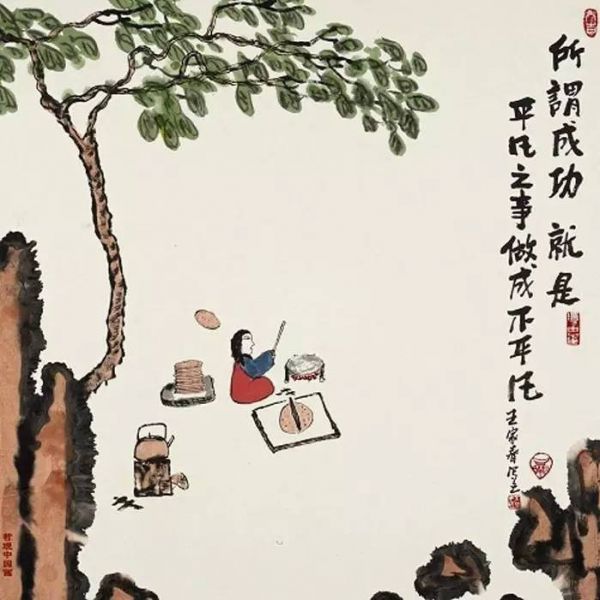 所謂成功 就是
平凡之事做成不平凡
王家春写之